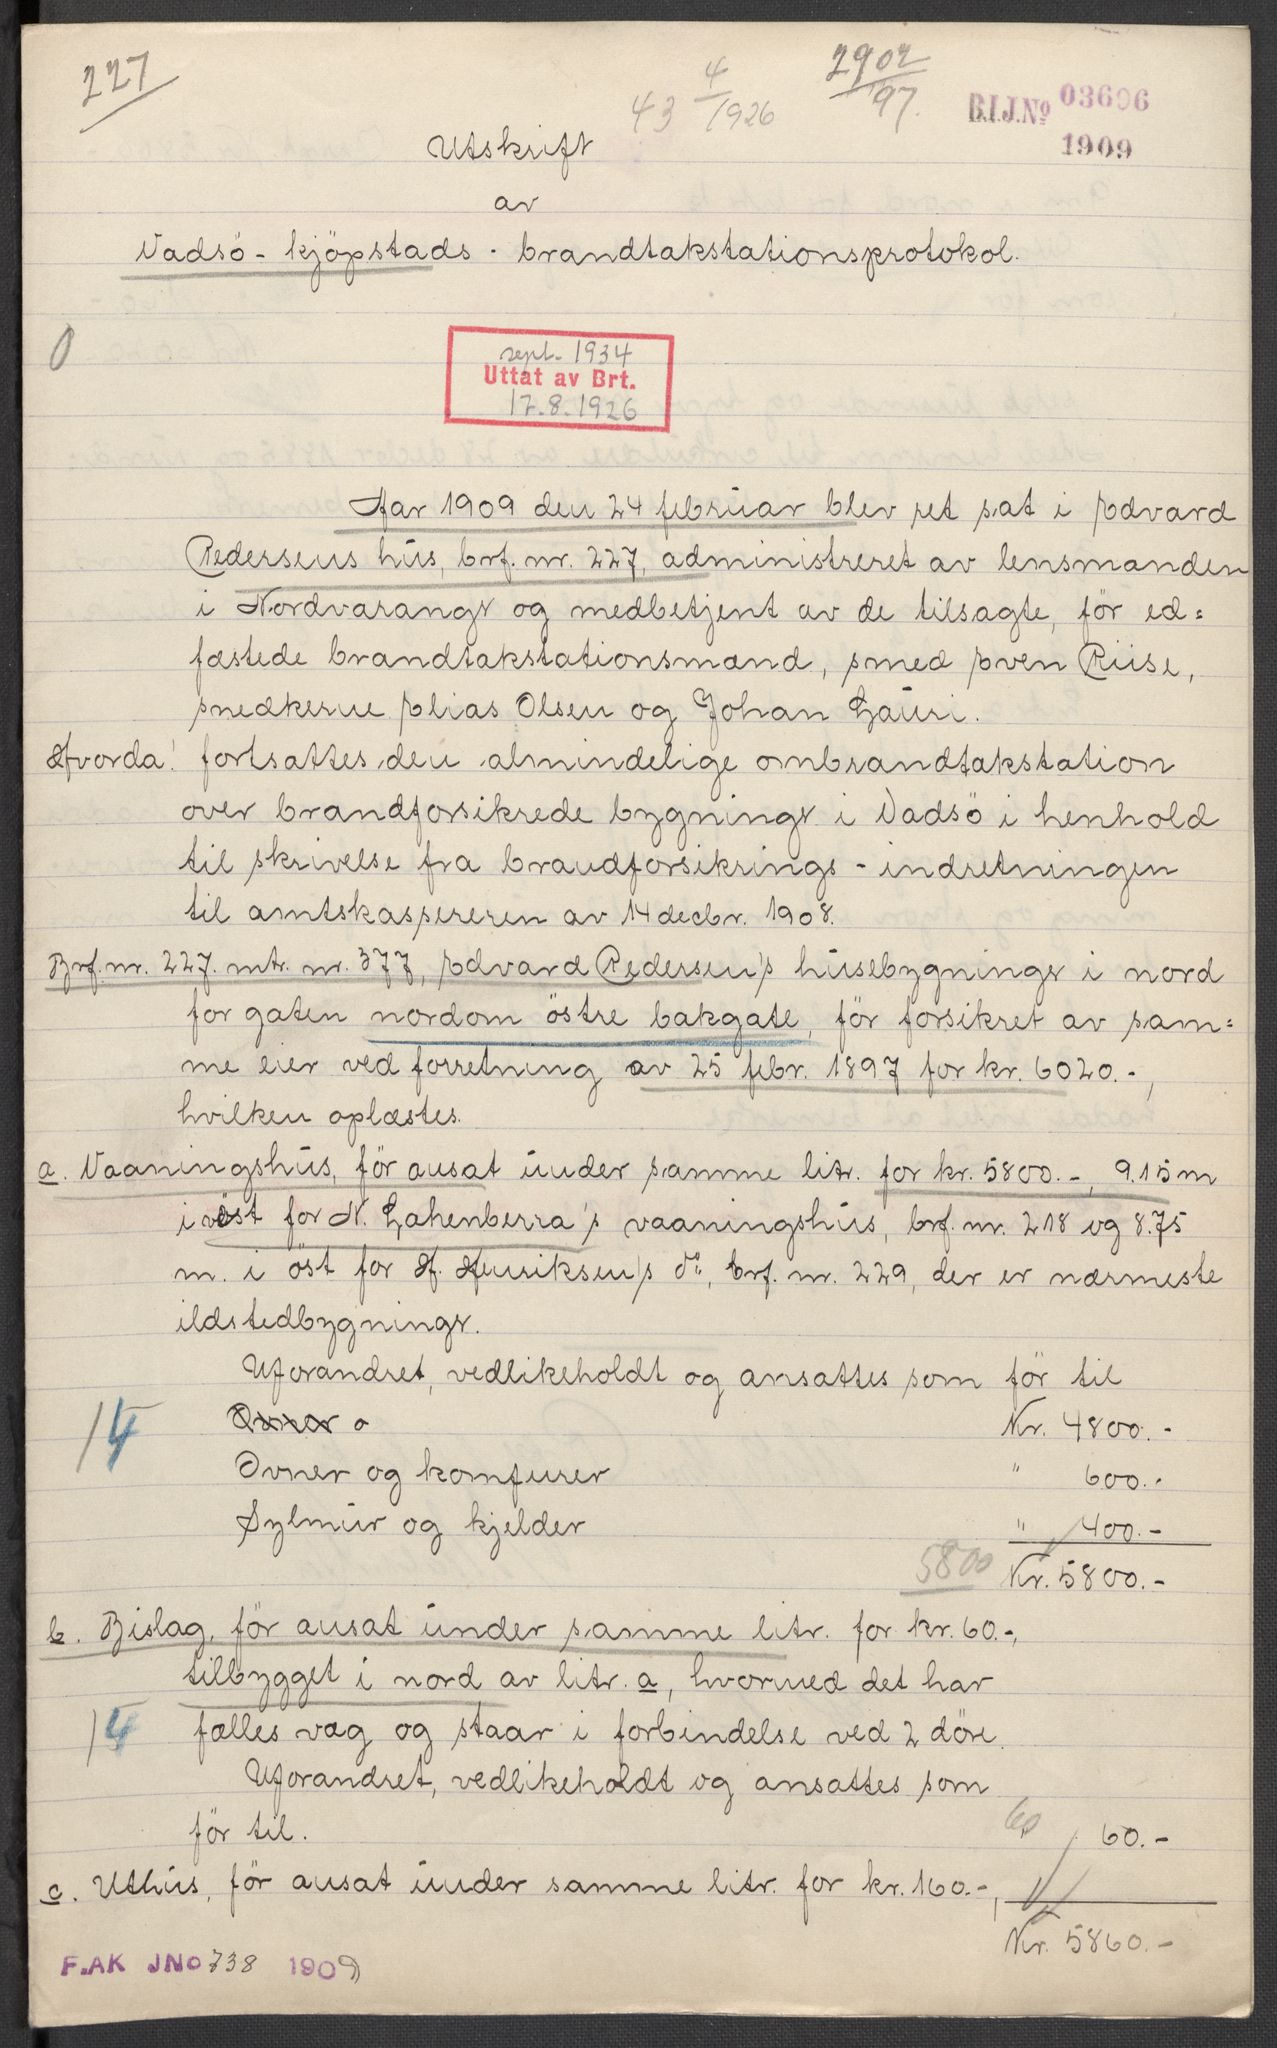 227
43 4/1926
2902/97.
B.I.J.No 03696
1909
Utskrift
av
Vadsö - kjöpstads - brandtakstationsprotokol.
0
sept. 1934
Uttat av Brt.
17.8.1926
Aar 1909 den 24 februar blev ret sat i Edvard
Pedersens hus, brf. nr. 227, administreret av lensmanden
i Nordvaranger og medbetjent av de tilsagte, för ed=
fæstede brandtakstationsmænd, smed Even Riise,
snedkerne Elias Olsen og Johan Lauri.
Hvorda! fortsattes den almindelige ombrandtakstation
over brandforsikrede bygninger i Vadsö i henhold
til skrivelse fra brandforsikrings - indretningen
til amtskassereren av 14 decbr. 1908.
Brf. nr. 227. mtr. nr. 377, Edvard Pedersen's husebygninger i nord
for gaten nordom östre bakgate, för forsikret av sam=
me eier ved forretning av 25 febr. 1897 for kr. 6020.-,
hvilken oplæstes.
a. Vaaningshus, för ansat under samme litr. for kr. 5800.-, 9.15 m
i vest for N. Lahenberra's vaaningshus, brf. nr. 218 og 8.75
m. i öst for H. Henriksen's do, brf. nr. 229, der er nærmeste
ildstedbygninger.
Uforandret, vedlikeholdt og ansattes som för til
Kr. 4800.-
14
Ovner og komfurer " 600.-
Sylmur og kjelder " 400.-
5800 Kr. 5800.-
b. Bislag, för ansat under samme litr. for kr. 60.-,
tilbygget i nord av litr. a, hvormed det har
14 fælles væg og staar i forbindelse ved 2 döre.
Uforandret, vedlikeholdt og ansattes som
för til. 60 60.-
c. Uthus, för ansat under samme litr. for kr. 160.-,
Kr. 5860.-
F.AK JNo 738 1909